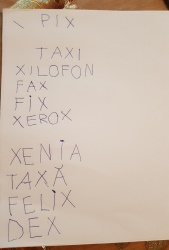 \ PIX
TAXI
XILOFON
FAX
FIX
XEROX
XENIA
TAXĂ
FELIX
DEX